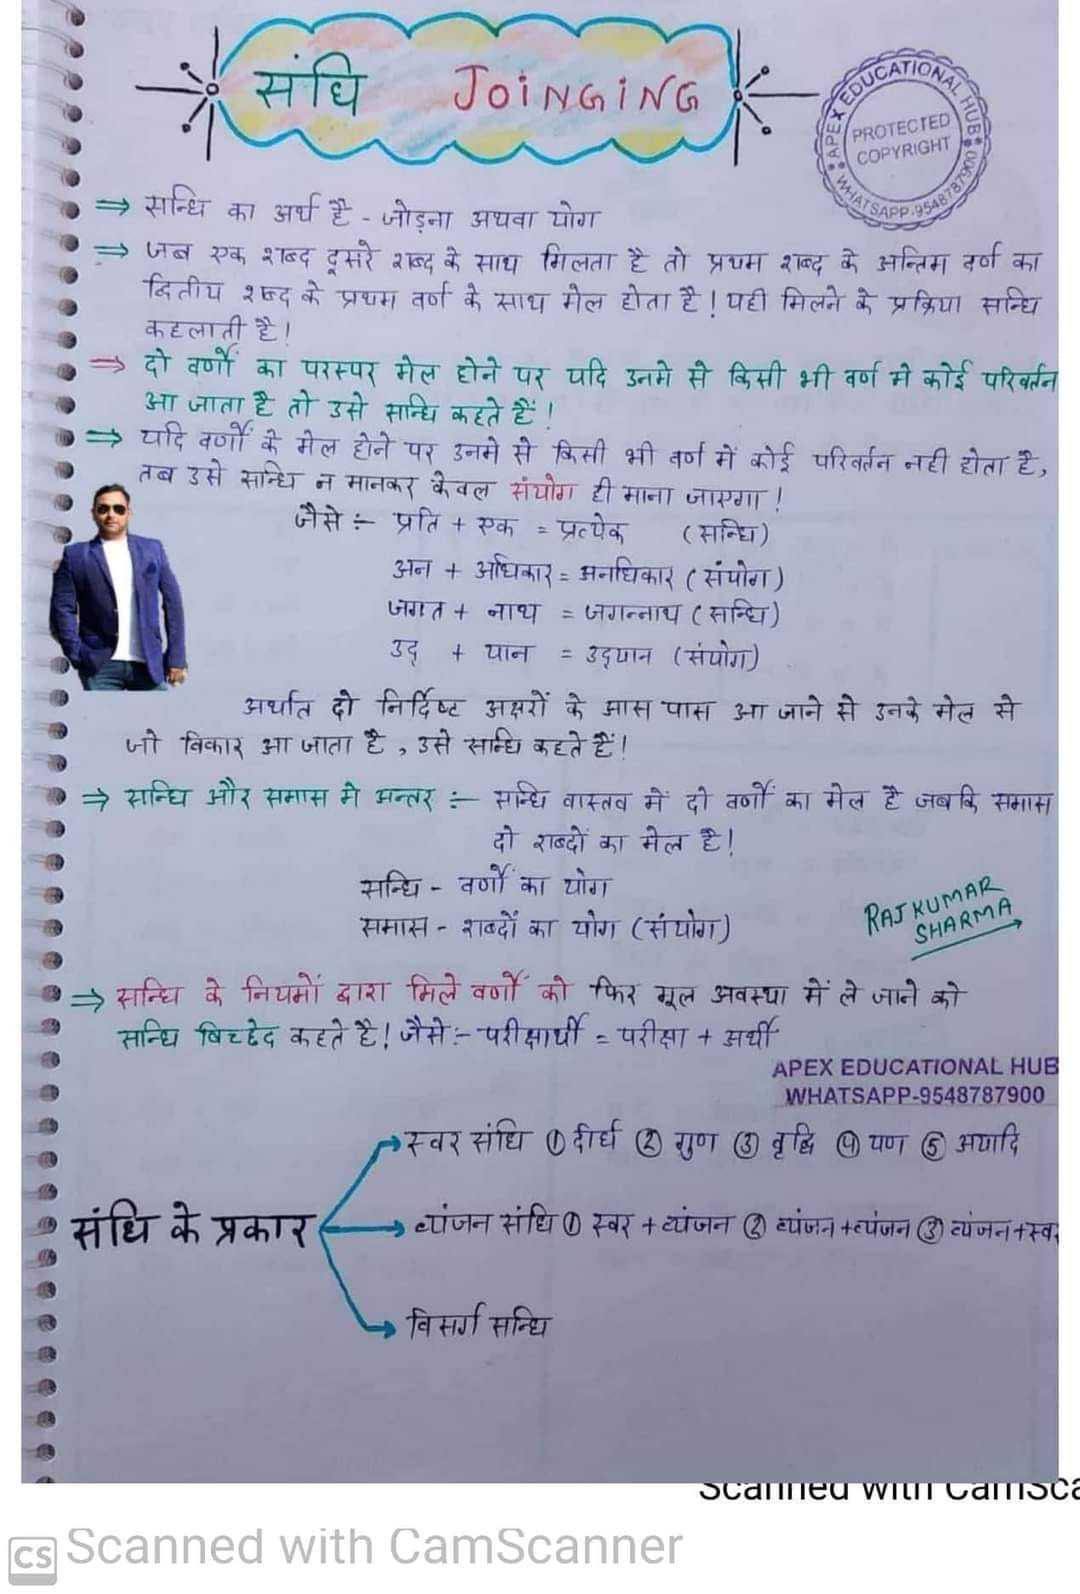 संधि JOINGING
APEX EDUCATIONAL HUB
PROTECTED
COPYRIGHT
WHATSAPP-9548787900
⇒ सन्धि का अर्थ है - जोड़ना अथवा योग
⇒ जब एक शब्द दूसरे शब्द के साथ मिलता है तो प्रथम शब्द के अन्तिम वर्ण का
द्वितीय शब्द के प्रथम वर्ण के साथ मेल होता है! यही मिलने के प्रक्रिया सन्धि
कहलाती है!
⇒ दो वर्णों का परस्पर मेल होने पर यदि उनमे से किसी भी वर्ण मे कोई परिवर्तन
आ जाता है तो उसे सन्धि कहते हैं!
⇒ यदि वर्णों के मेल होने पर उनमे से किसी भी वर्ण में कोई परिवर्तन नही होता है,
तब उसे सन्धि न मानकर केवल संयोग ही माना जाएगा!
जैसे :- प्रति + एक = प्रत्येक (सन्धि)
अन + अधिकार = अनधिकार (संयोग)
जगत + नाथ = जगन्नाथ (सन्धि)
उद् + यान = उद्यान (संयोग)
अर्थात दो निर्दिष्ट अक्षरों के आस पास आ जाने से उनके मेल से
जो विकार आ जाता है, उसे सन्धि कहते हैं!
⇒ सन्धि और समास मे अन्तर :- सन्धि वास्तव में दो वर्णों का मेल है जबकि समास
दो शब्दों का मेल है!
सन्धि - वर्णों का योग
समास - शब्दों का योग (संयोग)
RAJ KUMAR
SHARMA
⇒ सन्धि के नियमों द्वारा मिले वर्णों को फिर मूल अवस्था में ले जाने को
सन्धि विच्छेद कहते है! जैसे :- परीक्षार्थी = परीक्षा + अर्थी
APEX EDUCATIONAL HUB
WHATSAPP-9548787900
स्वर संधि ① दीर्घ ② गुण ③ वृद्धि ④ यण ⑤ अयादि
संधि के प्रकार
व्यंजन संधि ① स्वर + व्यंजन ② व्यंजन + व्यंजन ③ व्यंजन + स्वर
विसर्ग सन्धि
Scanned with CamSca
CS Scanned with CamScanner